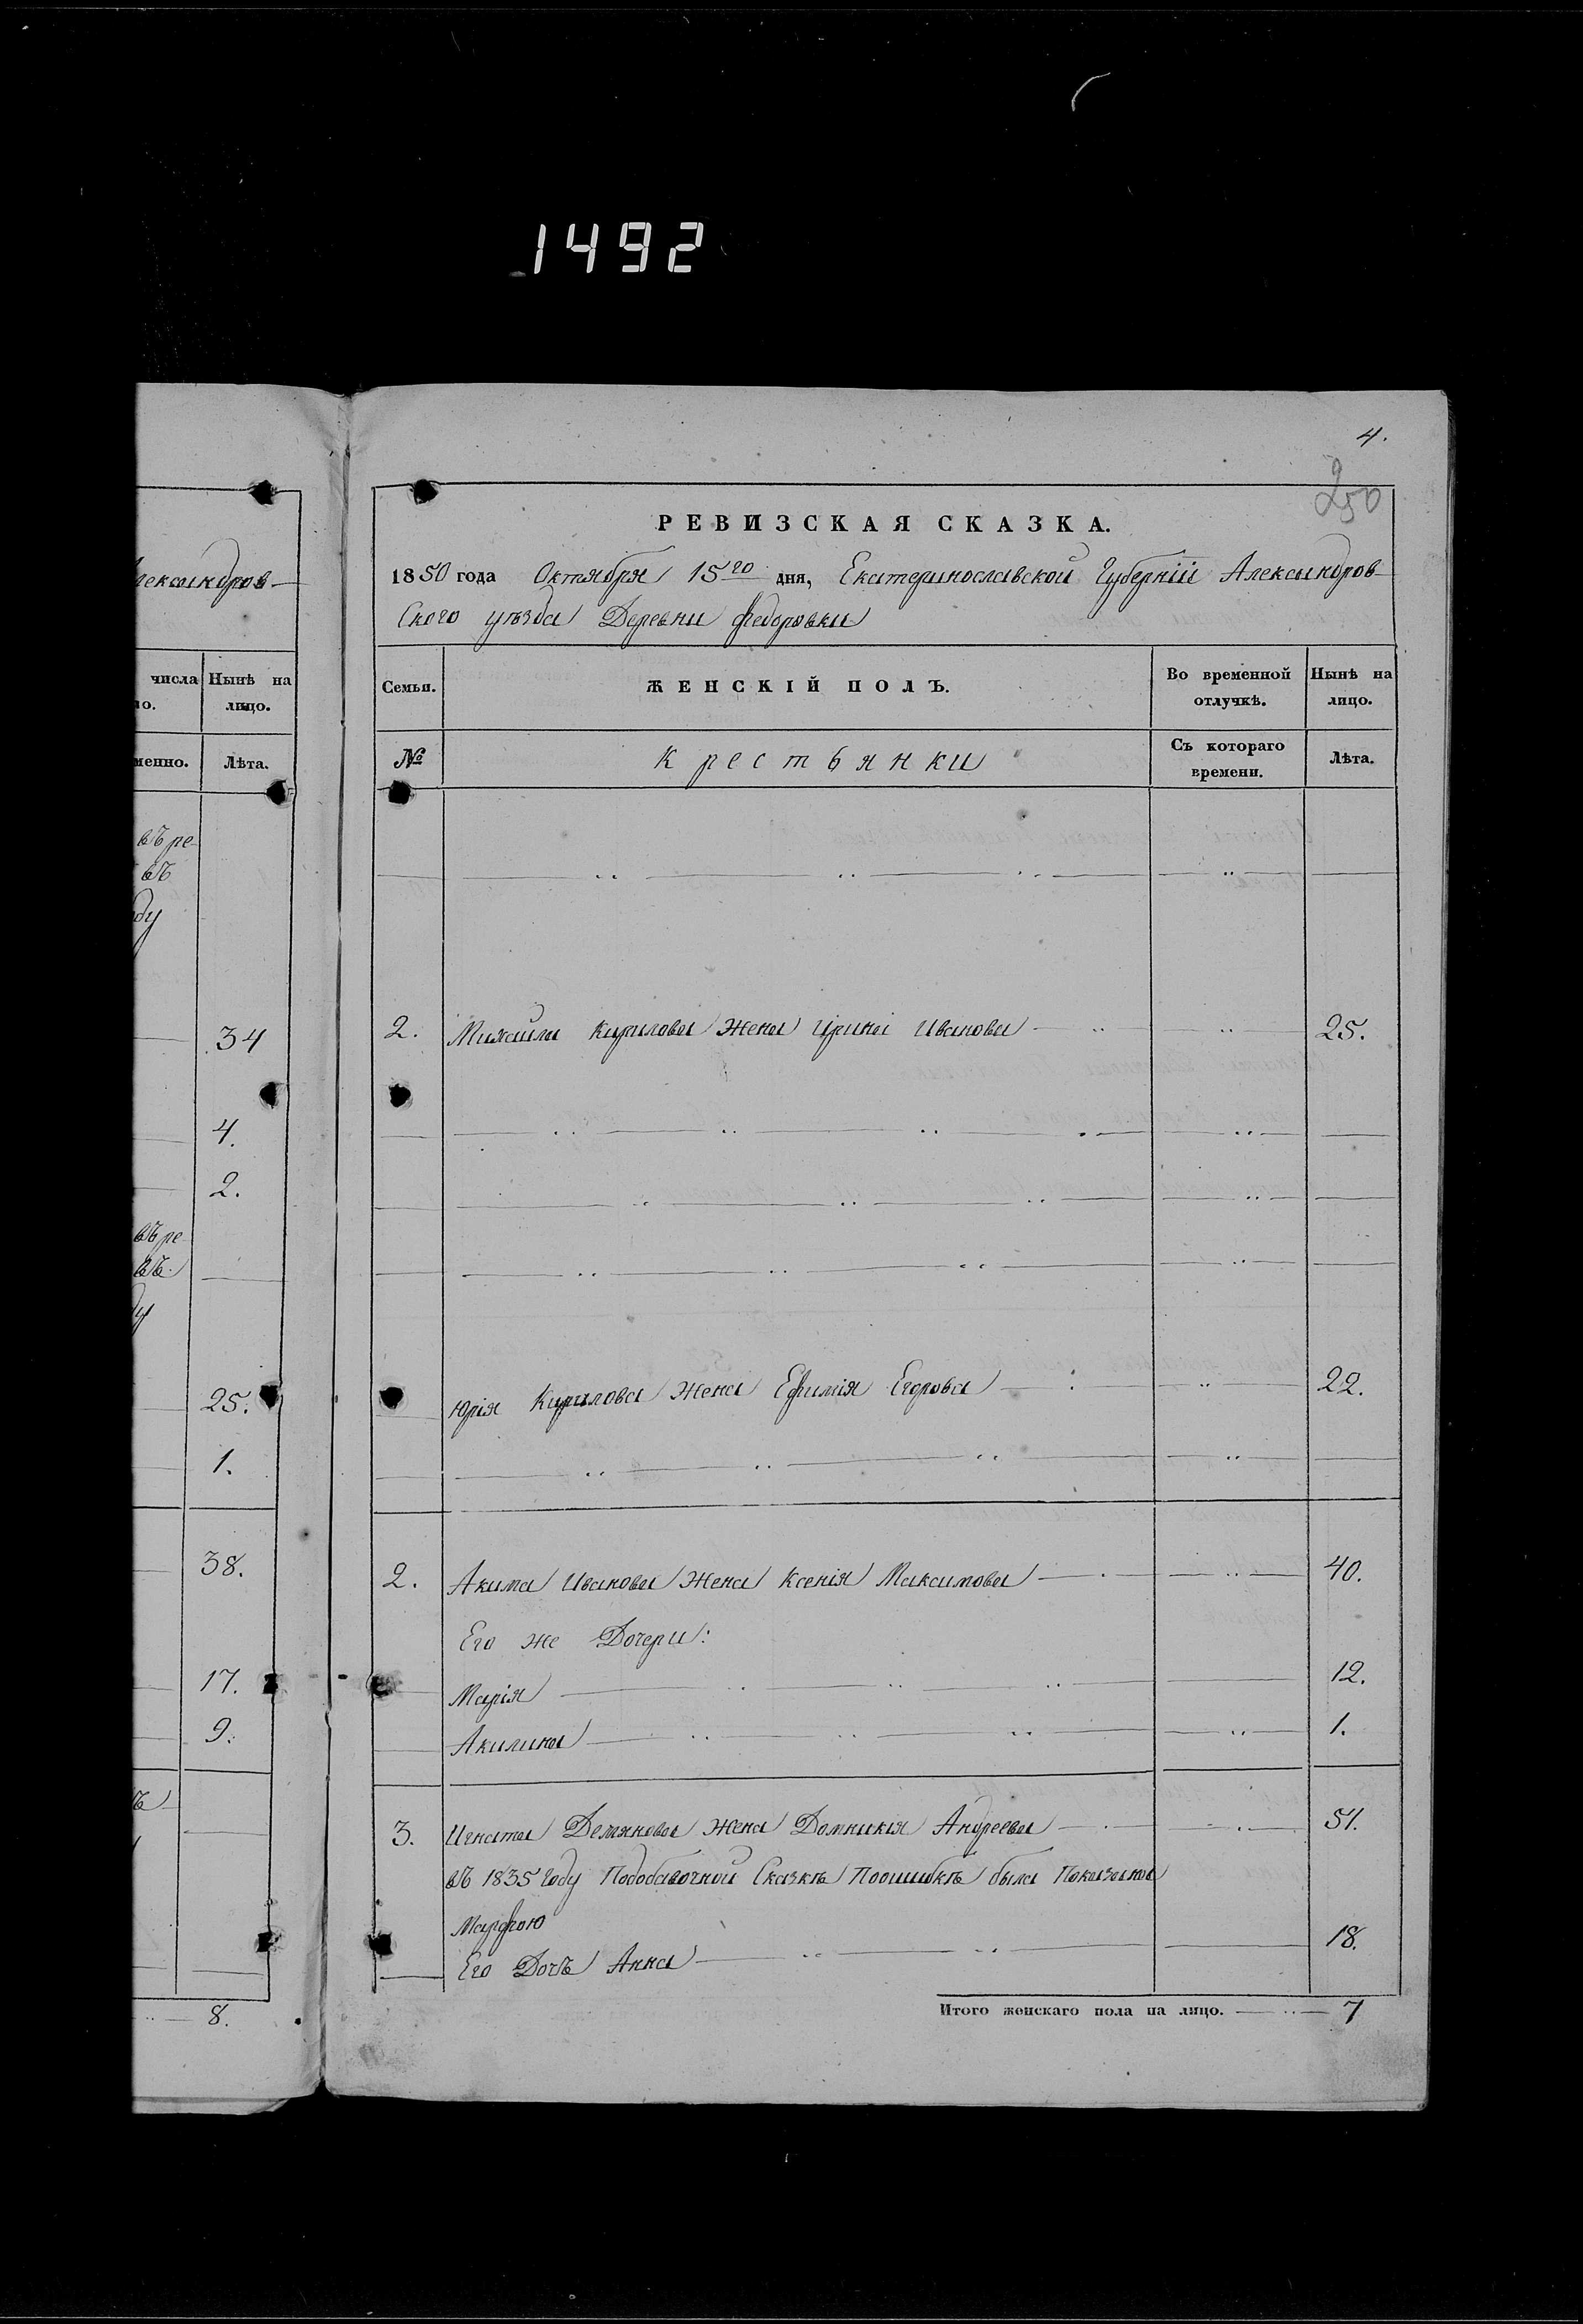 1492
лександров-
числа Нынѣ на
но. лицо.
менно. Лѣта.
въ ре-
въ
ду
34
4.
2.
въ ре-
въ
ду
25.
1.
38.
17.
9.
8.
4.
250
РЕВИЗСКАЯ СКАЗКА.
1850 года Октября 15го дня, Екатеринославской Губерніи Александров-
ского уѣзда Деревни Федоровки
Семьи. ЖЕНСКІЙ ПОЛЪ. Во временной отлучкѣ. Нынѣ на лицо.
№ Крестьянки Съ котораго времени. Лѣта.
2. Михайла Кирилова жена Ирина Иванова 25.
Юрія Кирилова жена Ефимія Егорова 22.
2. Акима Иванова жена Ксенія Максимова 40.
Его же Дочери:
Марія 12.
Акилина 1.
3. Игната Демянова жена Домникія Андреева 51.
въ 1835 году Пододавочной Сказкѣ Поошибкѣ была Показана
Марфою
Его Дочь Анна 18.
Итого женскаго пола на лицо. 7